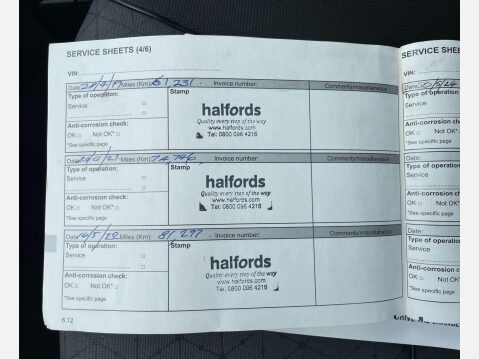 SERVICE SHEETS (4/6)
VIN:
Date: Miles (Km): 61 231. Invoice number: Comments/miscellaneous
Type of operation:
Service
Anti-corrosion check:
OK □ Not OK* □
*See specific page
Stamp
halfords
Quality every step of the way
www.halfords.com
Tel: 0800 096 4216
Date: Miles (Km): 74,746 Invoice number: Comments/miscellaneous
Type of operation:
Service
Anti-corrosion check:
OK □ Not OK* □
*See specific page
Stamp
halfords
Quality every step of the way
www.halfords.com
Tel: 0800 096 4216
Date: 14/5/22 Miles (Km): 81 297 Invoice number: Comments/miscellaneous
Type of operation:
Service
Anti-corrosion check:
OK □ Not OK* □
*See specific page
Stamp
halfords
Quality every step of the way
www.halfords.com
Tel: 0800 096 4216
6.12
SERVICE SHEE
VIN:
Date:
Type of operation:
Service
Anti-corrosion
OK □ Not
*See specific page
Date:
Type of operatio
Service
Anti-corrosion
OK □ Not O
*See specific page
Date:
Type of operatio
Service
Anti-corrosion
OK □ Not O
*See specific page